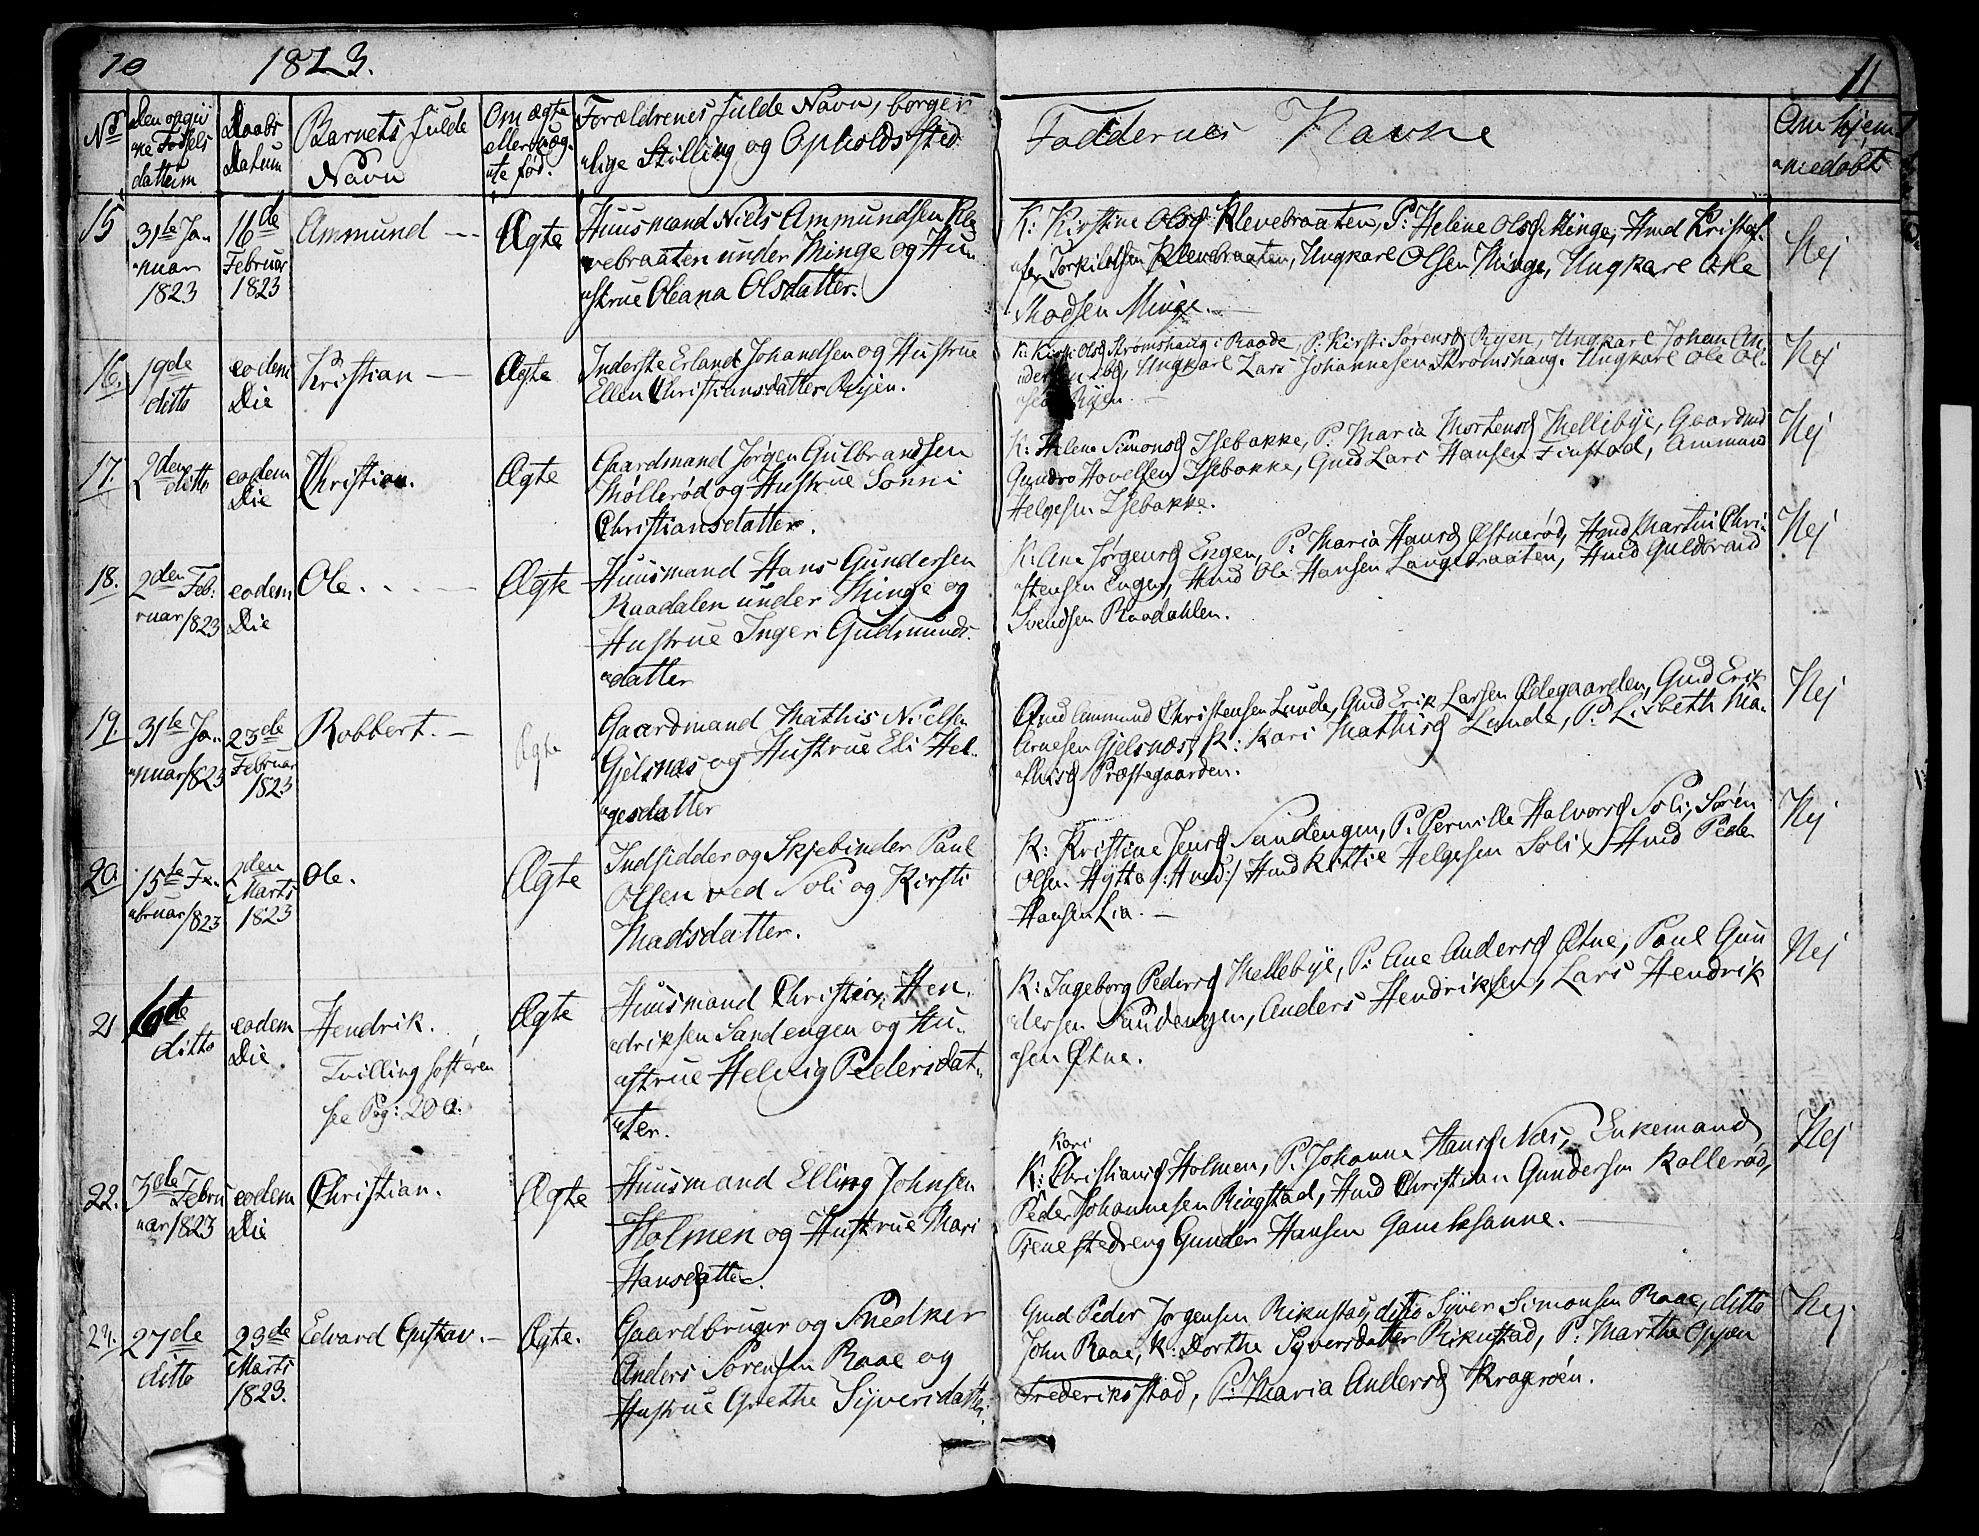 10 1823. 11
No
Den opgiv
ne Fødsels
dattum
Daabs
Datum
Barnets fulde
Navn
Om ægte
eller uæg-
te fød.
Forældrenes fulde Navn, borger
lige Stilling og Opholdssted
Faddernes Navne
Om hjem
medøbt
15
31te Ja-
nuar
1823
16de
Februar
1823
Ammund
Ægte
Huusmand Niels Ammundsen Kle
vebraaten under Minge og Hu
strue Oleana Olsdatter.
K: Kirstine Olsd Klevebraaten, P: Helene Olsd Minge, Hmd Kristof-
fer Torkildsen Klevebraaten, Ungkarl Olsen Minge, Ungkarl Ole
Madsen Minge.
Nej
16.
19de
ditto
eodem
Die
Kristian
Ægte
Inderste Erland Johandsen og Hustrue
Ellen Christiansdatter Ryen.
K: Kirsti Olsd Strømshaug i Raade, P: Kirsti Sørensd Ryen, Ungkarl Johan An-
dersen ibd, Ungkarl Lars Johannesen Strømshaug. Ungkarl Ole Ol-
sen Ryen.
Nej
17.
2den
ditto
eodem
Die
Christian.
Ægte
Gaardmand Jørgen Gulbrandsen
Møllerød og Hustrue Sonni
Christiansdatter.
K: Helene Simonsd Isebakke, P: Maria Mortensd Mellibye, Gaardmd
Gundro Hovelsen Isebakke, Gmd Lars Hansen Finstad, Ammund
Helgesen Isebakke.
Nej
18.
2den Feb:
ruar 1823
eodem
Die
Ole.
Ægte
Huusmand Hans Gundersen
Raadalen under Minge og
Hustrue Inger Gudmunds-
datter
K: Ane Jørgensd Engen, P: Maria Hansd Østnerød, Hmd Martin Chri-
stensen Engen, Hmd Ole Hansen Langebraaten, Hmd Guldbrand
Svendsen Raadahlen.
Nej
19.
31te Ja-
nuar 1823
23de
Februar
1823
Robbert.
Ægte
Gaardmand Mathis Nielsen
Gjelsnæs og Hustrue Eli Hel-
gesdatter
Gmd Ammund Christensen Lunde, Gmd Erik Larsen Ødegaarden, Gmd Erik
Arnesen Gjelsnæs, K: Kari Mathisd Lunde, P: Lisbeth Ma-
thisd Præstegaarden.
Nej
20.
15te Fe-
bruar 1823
2den
Marts
1823
Ole.
Ægte
Indsidder og Skjebinder Paul
Olsen ved Soli og Kirsti
Madsdatter.
K: Kristine Jensd Sandengen, P: Pernille Halvorsd Soli, Søren
Olsen Hytta /: Hmd:/ Hmd Kittil Helgesen Soli, Hmd Peder
Hansen Lia.
Nej
21
16de
ditto
eodem
Die
Hendrik.
Tvilling søsteren
see Pag: 200.
Ægte
Huusmand Christian Hen-
driksen Sandengen og Hu-
strue Helvig Pedersdat-
ter.
K: Ingeborg Pedersd Mellebye, P: Ane Andersd Østne, Paul Gun
dersen Sandengen, Anders Hendriksen, Lars Hendrik
sen Østne.
Nej
22.
3de Febru
ar 1823
eodem
Die
Christian.
Ægte
Huusmand Elling Johnsen
Holmen og Hustrue Mari
Hansdatter.
Kari
K: Christiansd Holmen, P: Johanne Hansd Næs, Enkemand
Peder Johannesen Ringstad, Hmd Christian Gundersen Kallerød,
Tjenestedreng Gunder Hansen
Nej
27de
ditto
29de
Marts
1823.
Edvard Gustav.
Ægte.
Gaardbruger og Snedker
Anders Sørensen Raae og
Hustrue Grethe Syversdatter.
Gmd Peder Jørgensen Rikustad, ditto Syver Simonsen Raae, ditto
John Raae, K: Dorthe Syversdatter Rikustad, P: Marthe Oppen
Frederiksstad, P: Maria Andersd Kragerøen.
Nej